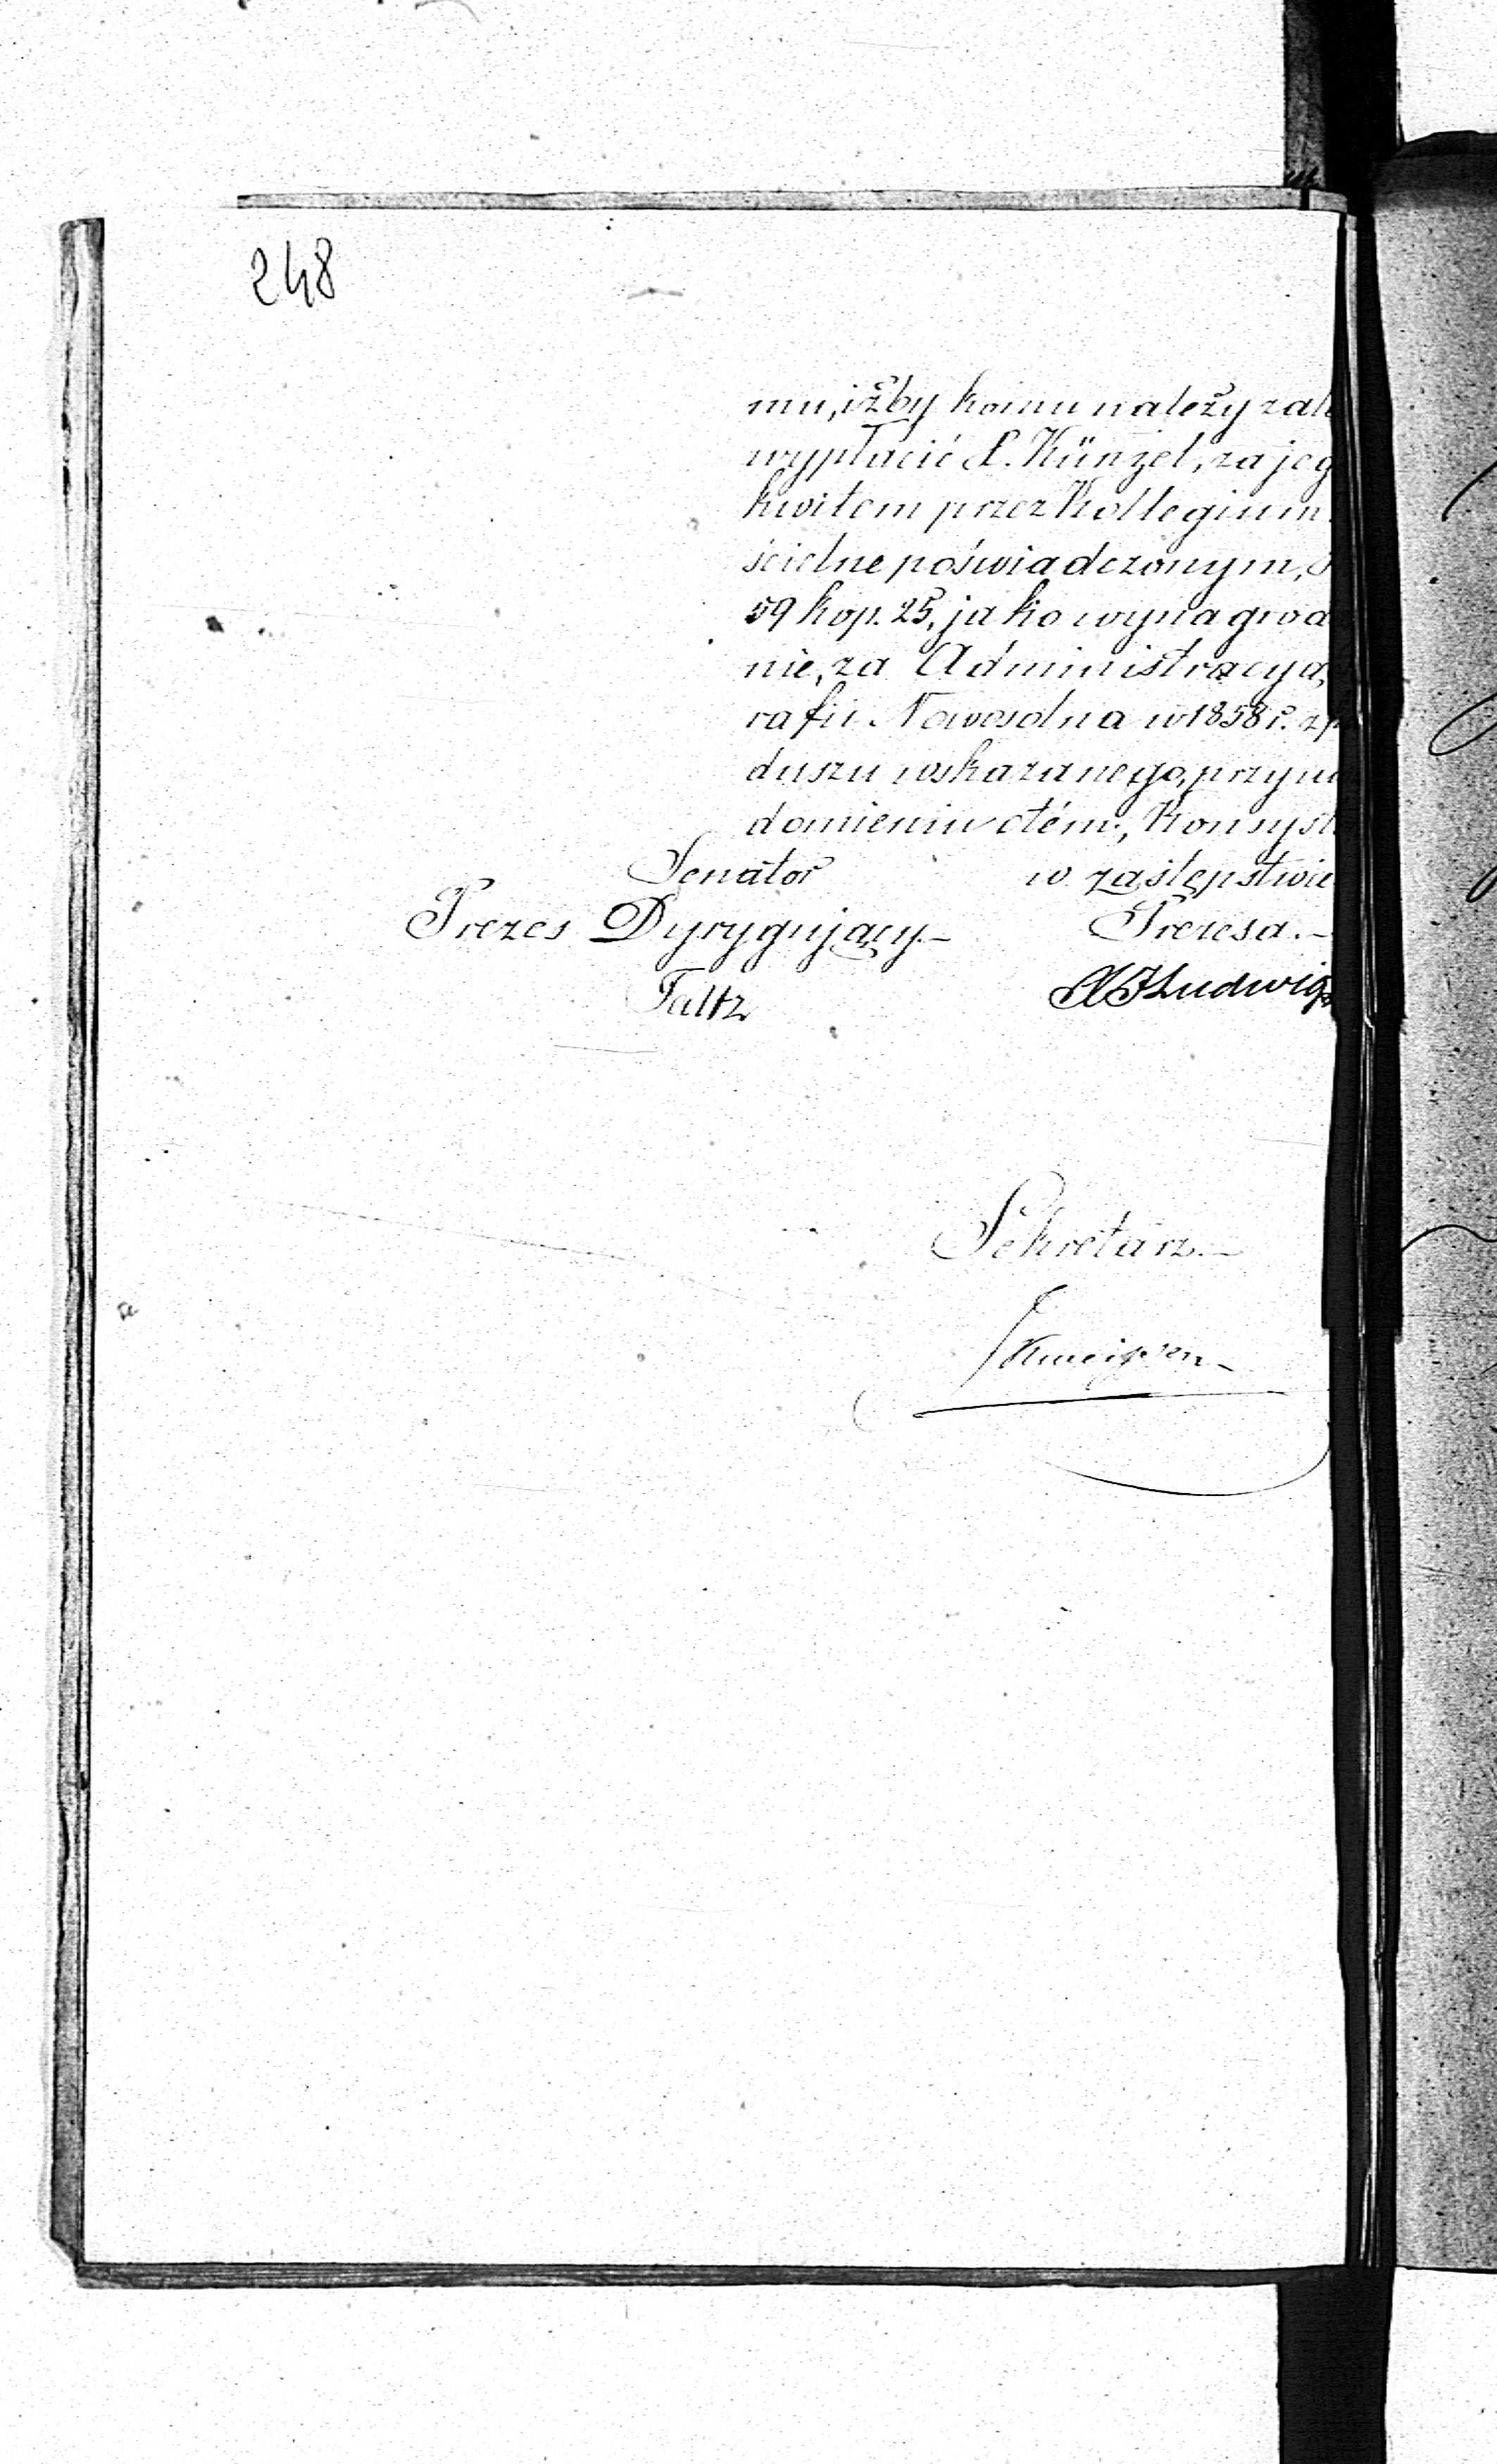 248
mu, iżby komu należy zale
wypłacić X. Künzel, za jeg
kwitem przez Kollegium
ścielne poświadczonym,
59 kop. 25, jako wynagrod
nie, za Administracyą,
rafii Nowosolna w 1858 r. z
duszu wskazanego, przy
domieniu otém, Konsyst
Senator w zastępstwie
Prezes Dyrygujący.- Prezesa.-
Taltz Ludwig
Sekretarz.-